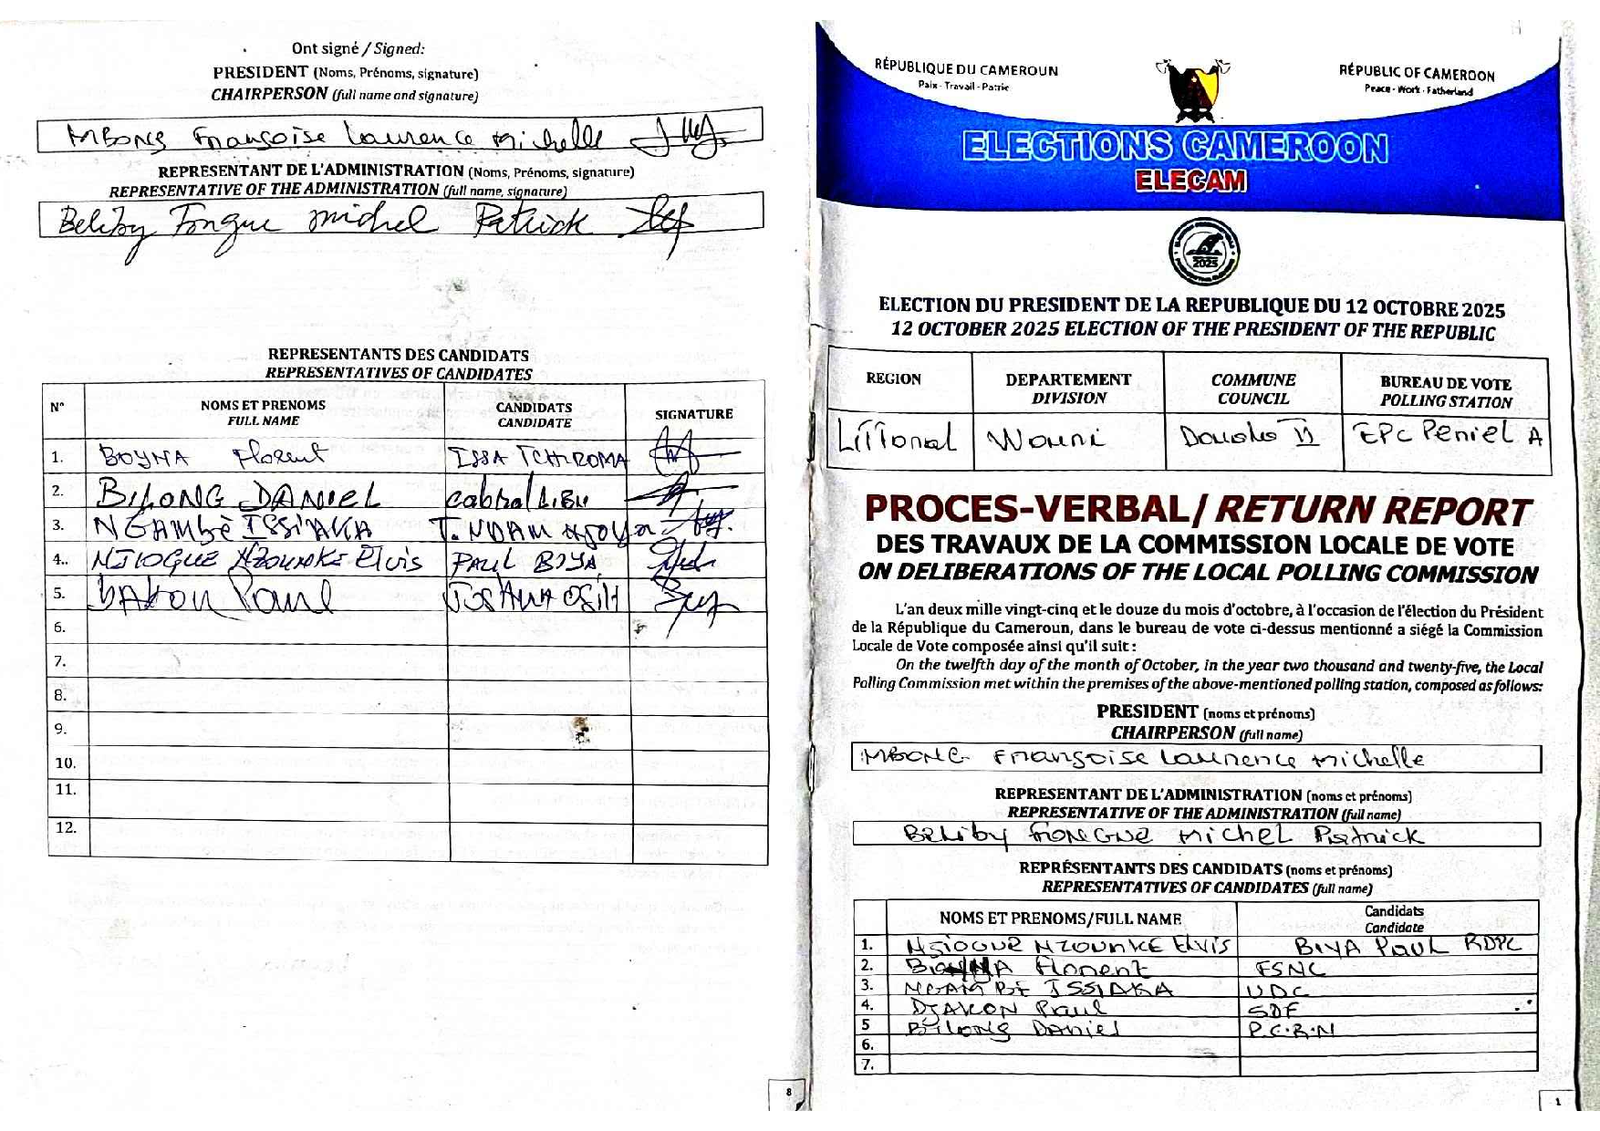 Ont signé / Signed:
PRESIDENT (Noms, Prénoms, signature)
CHAIRPERSON (full name and signature)
MBONG Françoise Laurence Michelle
REPRESENTANT DE L'ADMINISTRATION (Noms, Prénoms, signature)
REPRESENTATIVE OF THE ADMINISTRATION (full name, signature)
Beliby Fongue michel Patrick
REPRESENTANTS DES CANDIDATS
REPRESENTATIVES OF CANDIDATES
N° NOMS ET PRENOMS FULL NAME CANDIDATS CANDIDATE SIGNATURE
1. BOYMA Florent ISSA TCHIROMA
2. BILONG DANIEL cabral LIBII
3. NGAMBè ISSIAKA T. NDAM NJOYA
4.. NJIOGUE NZOUNKE Elvis PAUL BIYA
5. Paul JOSHUA OSIH
6.
7.
8.
9.
10.
11.
12.
8
RÉPUBLIQUE DU CAMEROUN
Paix - Travail - Patrie
RÉPUBLIC OF CAMEROON
Peace - Work - Fatherland
ELECTIONS CAMEROON
ELECAM
2025
ELECTION DU PRESIDENT DE LA REPUBLIQUE DU 12 OCTOBRE 2025
12 OCTOBER 2025 ELECTION OF THE PRESIDENT OF THE REPUBLIC
REGION DEPARTEMENT DIVISION COMMUNE COUNCIL BUREAU DE VOTE POLLING STATION
LITTORAL Wouri Douala VI EPC PENIEL A
PROCES-VERBAL/ RETURN REPORT
DES TRAVAUX DE LA COMMISSION LOCALE DE VOTE
ON DELIBERATIONS OF THE LOCAL POLLING COMMISSION
L'an deux mille vingt-cinq et le douze du mois d'octobre, à l'occasion de l'élection du Président
de la République du Cameroun, dans le bureau de vote ci-dessus mentionné a siégé la Commission
Locale de Vote composée ainsi qu'il suit :
On the twelfth day of the month of October, in the year two thousand and twenty-five, the Local
Polling Commission met within the premises of the above-mentioned polling station, composed as follows:
PRESIDENT (noms et prénoms)
CHAIRPERSON (full name)
MBONG Françoise Laurence Michelle
REPRESENTANT DE L'ADMINISTRATION (noms et prénoms)
REPRESENTATIVE OF THE ADMINISTRATION (full name)
BELIBY FONGUE Michel Patrick
REPRÉSENTANTS DES CANDIDATS (noms et prénoms)
REPRESENTATIVES OF CANDIDATES (full name)
NOMS ET PRENOMS/FULL NAME Candidats Candidate
1. NJIOGUE NZOUNKE Elvis BIYA Paul RDPC
2. Florent FSNC
3. NGAMBE ISSIAKA UDC
4. DJAKON Paul SDF
5 BILONG Daniel P.C.R.N
6.
7.
1